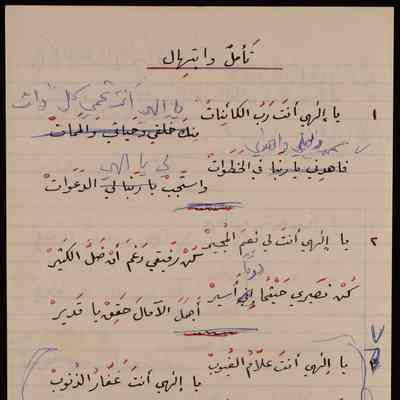 تأملٌ وابتهال
يا إلهي أنت تحمي كل ذات
١ يا إلٰهي أنتَ رَبُّ الكائِناتْ
منكَ خَلقي وحَياتي والمماتْ
لي يا الهي
فاهدِني يا ربنا في الخَطَواتْ
واستَجِبْ يا ربَّنا لي الدَعَواتْ
٢ يا إلٰهي أنتَ لي نِعمَ المُجيرْ
كُنْ رَفيقي رَغمَ أنْ ضَلَّ الكَثيرْ
دوماً
كُنْ نَصيري حَيْثُما أسيرْ
أجمَلَ الآمالِ حَقِّقْ يا قَديرْ
يا إلٰهي أنتَ علّامُ الغُيوبْ
يا إلٰهي أنتَ غفّارُ الذُنوبْ